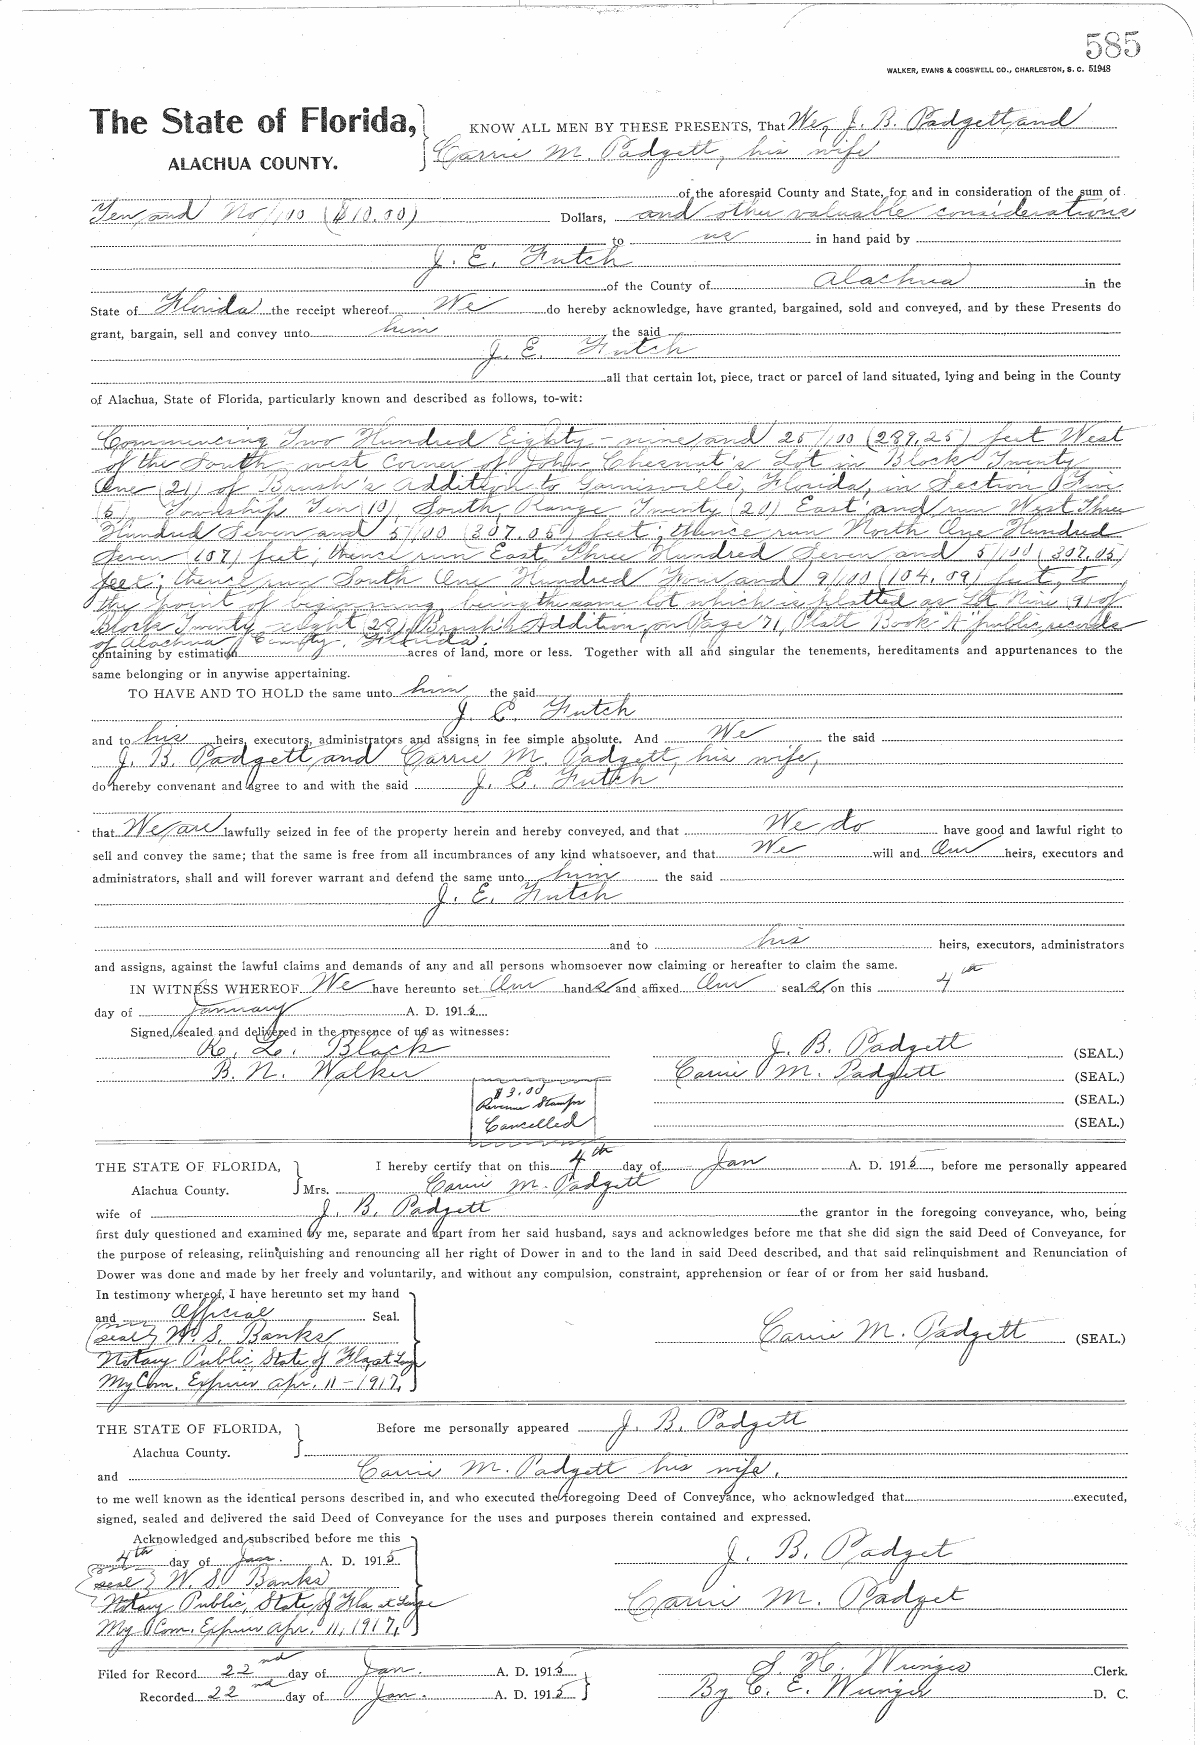 585
WALKER, EVANS & COGSWELL CO., CHARLESTON, S. C. 51948
The State of Florida,
ALACHUA COUNTY.
KNOW ALL MEN BY THESE PRESENTS, That We, J. B. Padgett and
Carrie M. Padgett, his wife
of the aforesaid County and State, for and in consideration of the sum of
Ten and No/100 ($10.00) Dollars, and other valuable considerations
to us in hand paid by
J. E. Futch
of the County of Alachua in the
State of Florida the receipt whereof We do hereby acknowledge, have granted, bargained, sold and conveyed, and by these Presents do
grant, bargain, sell and convey unto him the said
J. E. Futch
all that certain lot, piece, tract or parcel of land situated, lying and being in the County
of Alachua, State of Florida, particularly known and described as follows, to-wit:
Commencing Two Hundred Eighty-nine and 25/100 (289.25) feet West
of the South-west Corner of John Chesnut's Lot in Block Twenty
One (21) of Brush's Addition to Gainisville, Florida, in Section Five
(5) Township Ten (10) South, Range Twenty (20) East, and run West Three
Hundred Seven and 5/100 (307.05) feet; thence run North One Hundred
Seven (107) feet; thence run East Three Hundred Seven and 5/100 (307.05)
feet; thence run South One Hundred Four and 9/100 (104.09) feet, to
the point of beginning, being the same lot which is platted as Lot Nine (9) of
Block Twenty eight (28) Brush's Addition, on Page 71, Platt Book "A" public records
of Alachua County, Florida.
containing by estimation acres of land, more or less. Together with all and singular the tenements, hereditaments and appurtenances to the
same belonging or in anywise appertaining.
TO HAVE AND TO HOLD the same unto him the said
J. E. Futch
and to his heirs, executors, administrators and assigns in fee simple absolute. And We the said
J. B. Padgett and Carrie M. Padgett, his wife,
do hereby convenant and agree to and with the said J. E. Futch
that We are lawfully seized in fee of the property herein and hereby conveyed, and that We do have good and lawful right to
sell and convey the same; that the same is free from all incumbrances of any kind whatsoever, and that We will and Our heirs, executors and
administrators, shall and will forever warrant and defend the same unto him the said
J. E. Futch
and to his heirs, executors, administrators
and assigns, against the lawful claims and demands of any and all persons whomsoever now claiming or hereafter to claim the same.
IN WITNESS WHEREOF We have hereunto set Our hands and affixed Our seals on this 4th
day of January A. D. 1915.
Signed, sealed and delivered in the presence of us as witnesses:
R. L. Black
B. N. Walker
J. B. Padgett (SEAL.)
Carrie M. Padgett (SEAL.)
(SEAL.)
(SEAL.)
$3.00
Revenue Stamps
Cancelled
THE STATE OF FLORIDA,
Alachua County.
I hereby certify that on this 4th day of Jan A. D. 1915, before me personally appeared
Mrs. Carrie M. Padgett
wife of J. B. Padgett the grantor in the foregoing conveyance, who, being
first duly questioned and examined by me, separate and apart from her said husband, says and acknowledges before me that she did sign the said Deed of Conveyance, for
the purpose of releasing, relinquishing and renouncing all her right of Dower in and to the land in said Deed described, and that said relinquishment and Renunciation of
Dower was done and made by her freely and voluntarily, and without any compulsion, constraint, apprehension or fear of or from her said husband.
In testimony whereof, I have hereunto set my hand
and Official Seal.
(seal) W. S. Banks
Notary Public, State of Fla, at Large
My Com. Expires Apr. 11-1917.
Carrie M. Padgett (SEAL.)
THE STATE OF FLORIDA,
Alachua County.
Before me personally appeared J. B. Padgett
and Carrie M. Padgett his wife,
to me well known as the identical persons described in, and who executed the foregoing Deed of Conveyance, who acknowledged that executed,
signed, sealed and delivered the said Deed of Conveyance for the uses and purposes therein contained and expressed.
Acknowledged and subscribed before me this
4th day of Jan. A. D. 1915.
(seal) W. S. Banks
Notary Public, State of Fla at Large
My Com. Expires Apr. 11, 1917.
J. B. Padget
Carrie M. Padget
Filed for Record 22nd day of Jan. A. D. 1915
Recorded 22nd day of Jan. A. D. 1915
S. H. Wienges Clerk.
By C. E. Wienges D. C.